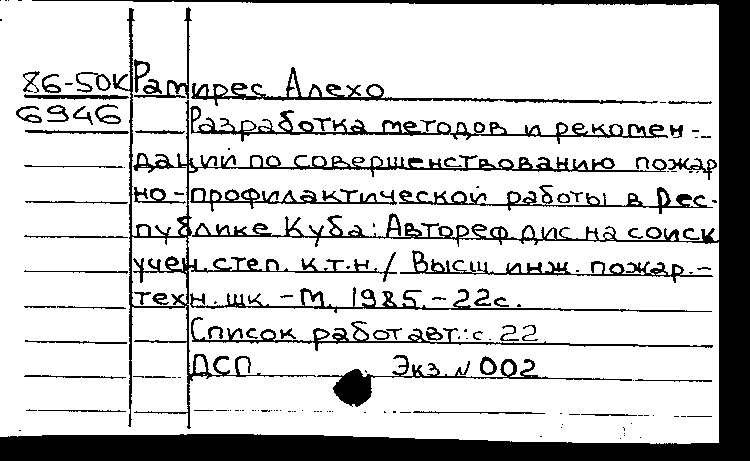 86-50К Рамирес Алехо
6946 Разработка методов и рекомен-
даций по совершенствованию пожар
но-профилактической работы в Рес-
публике Куба: Автореф дис на соиск
учен. степ. к.т.н. / Высш инж. пожар.-
техн. шк. - М., 1985. - 22с.
Список работ авт.: с. 22
ДСП. Экз. № 002